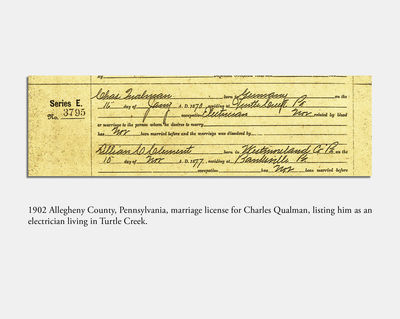 Series E.
No. 3795
Chas Qualman born in Germany on the
15 day of Jany A. D. 1870 residing at Turtle Creek Pa
occupation Electrician Not related by blood
or marriage to the person whom he desires to marry
has Not been married before and the marriage was dissolved by
Lillian D Clement born in Westmoreland Co Pa on the
15 day of Nov A. D. 1877 residing at
occupation has Not been married before
1902 Allegheny County, Pennsylvania, marriage license for Charles Qualman, listing him as an
electrician living in Turtle Creek.